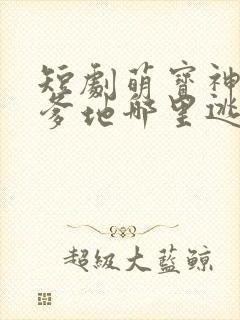 短劇萌寶神
爹地那里逃
超級大藍鯨